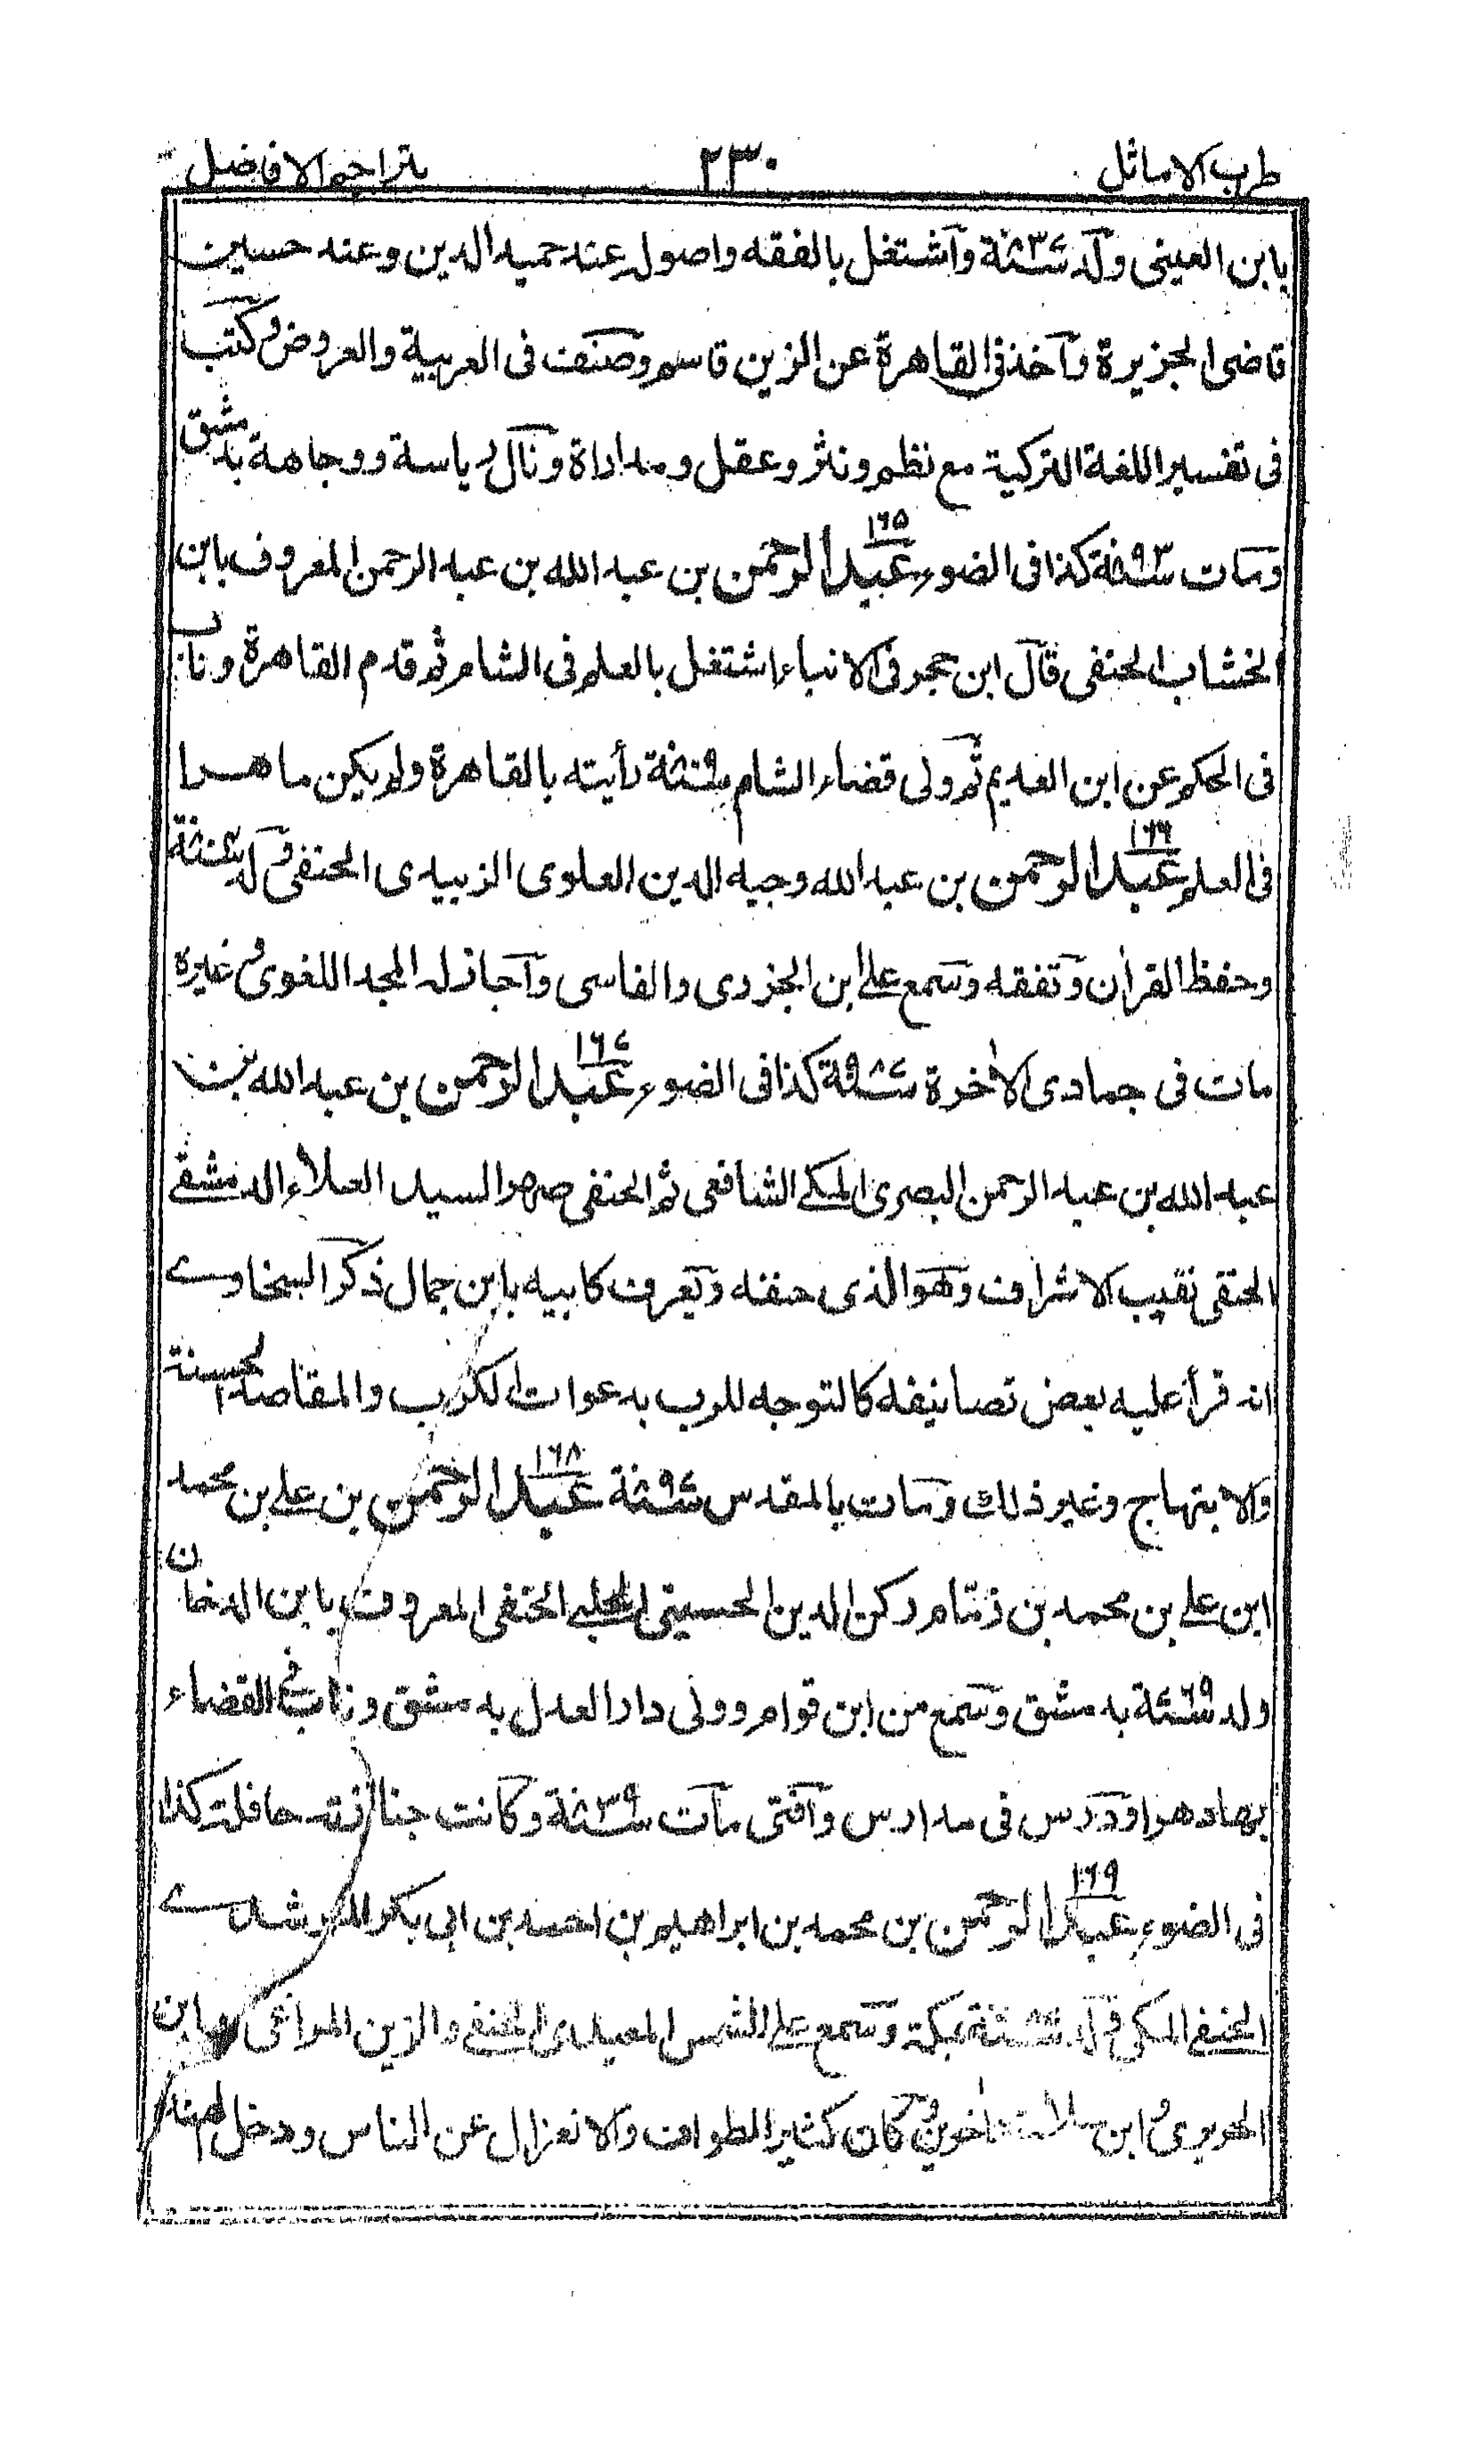 طرب الاماثل ٢٣٠ بتراجم الافاضل
بابن العينى ولد سنة واشتغل بالفقه واصوله عند حميد الدين وعند حسين
قاضى الجزيرة واخذ فى القاهرة عن الزين قاسم وصنف فى العربية والعروض وكتب
فى تفسير اللغة التركية مع نظم ونثر وعقل ومداراة ونال رياسة ووجاهة بدمشق
ومات سنة كذا فى الضوء ١٦٥ عبد الرحمن بن عبد الله بن عبد الرحمن المعروف بابن
الخشاب الحنفى قال ابن حجر فى الانباء اشتغل بالعلم فى الشام ثم قدم القاهرة وناب
فى الحكم عن ابن العديم ثم ولى قضاء الشام سنة رأيته بالقاهرة ولم يكن ماهرا
فى العلم ١٦٦ عبد الرحمن بن عبد الله وجيه الدين العلوى الزبيدى الحنفى ولد سنة
وحفظ القرأن وتفقه وسمع على ابن الجزرى والفاسى واجاز له المجد اللغوى وغيره
مات فى جمادى الاخرة سنة كذا فى الضوء ١٦٧ عبد الرحمن بن عبد الله بن
عبد الله بن عبد الرحمن البصرى المكى الشافعى ثم الحنفى صهر السيد العلاء الدمشقى
الحنفى نقيب الاشراف وهو الذى حنفه ويعرف كابيه بابن جمال ذكر السخاوى
انه قرأ عليه بعض تصانيفه كالتوجه للرب بدعوات الكرب والمقاصد الحسنة
والابتهاج وغير ذلك ومات بالمقدس سنة ١٦٨ عبد الرحمن بن على بن محمد
ابن على بن محمد بن زمام ركن الدين الحسينى الحنفى المعروف بابن الدخان
ولد سنة بدمشق وسمع من ابن قوام وولى دار العدل بدمشق وناب فى القضاء
بها دهرا ودرس فى مدارس وافتى مات سنة وكانت جنازته حافلة كذا
فى الضوء ١٦٩ عبد الرحمن بن محمد بن ابراهيم بن احمد بن ابى بكر المرشدى
الحنفى المكى ولد سنة بمكة وسمع على الشمس المعيدى الحنفى والزين المراغى وابن
الجزرى وابن سلامة واخرين وكان كثير الطواف والانعزال عن الناس ودخل الهند